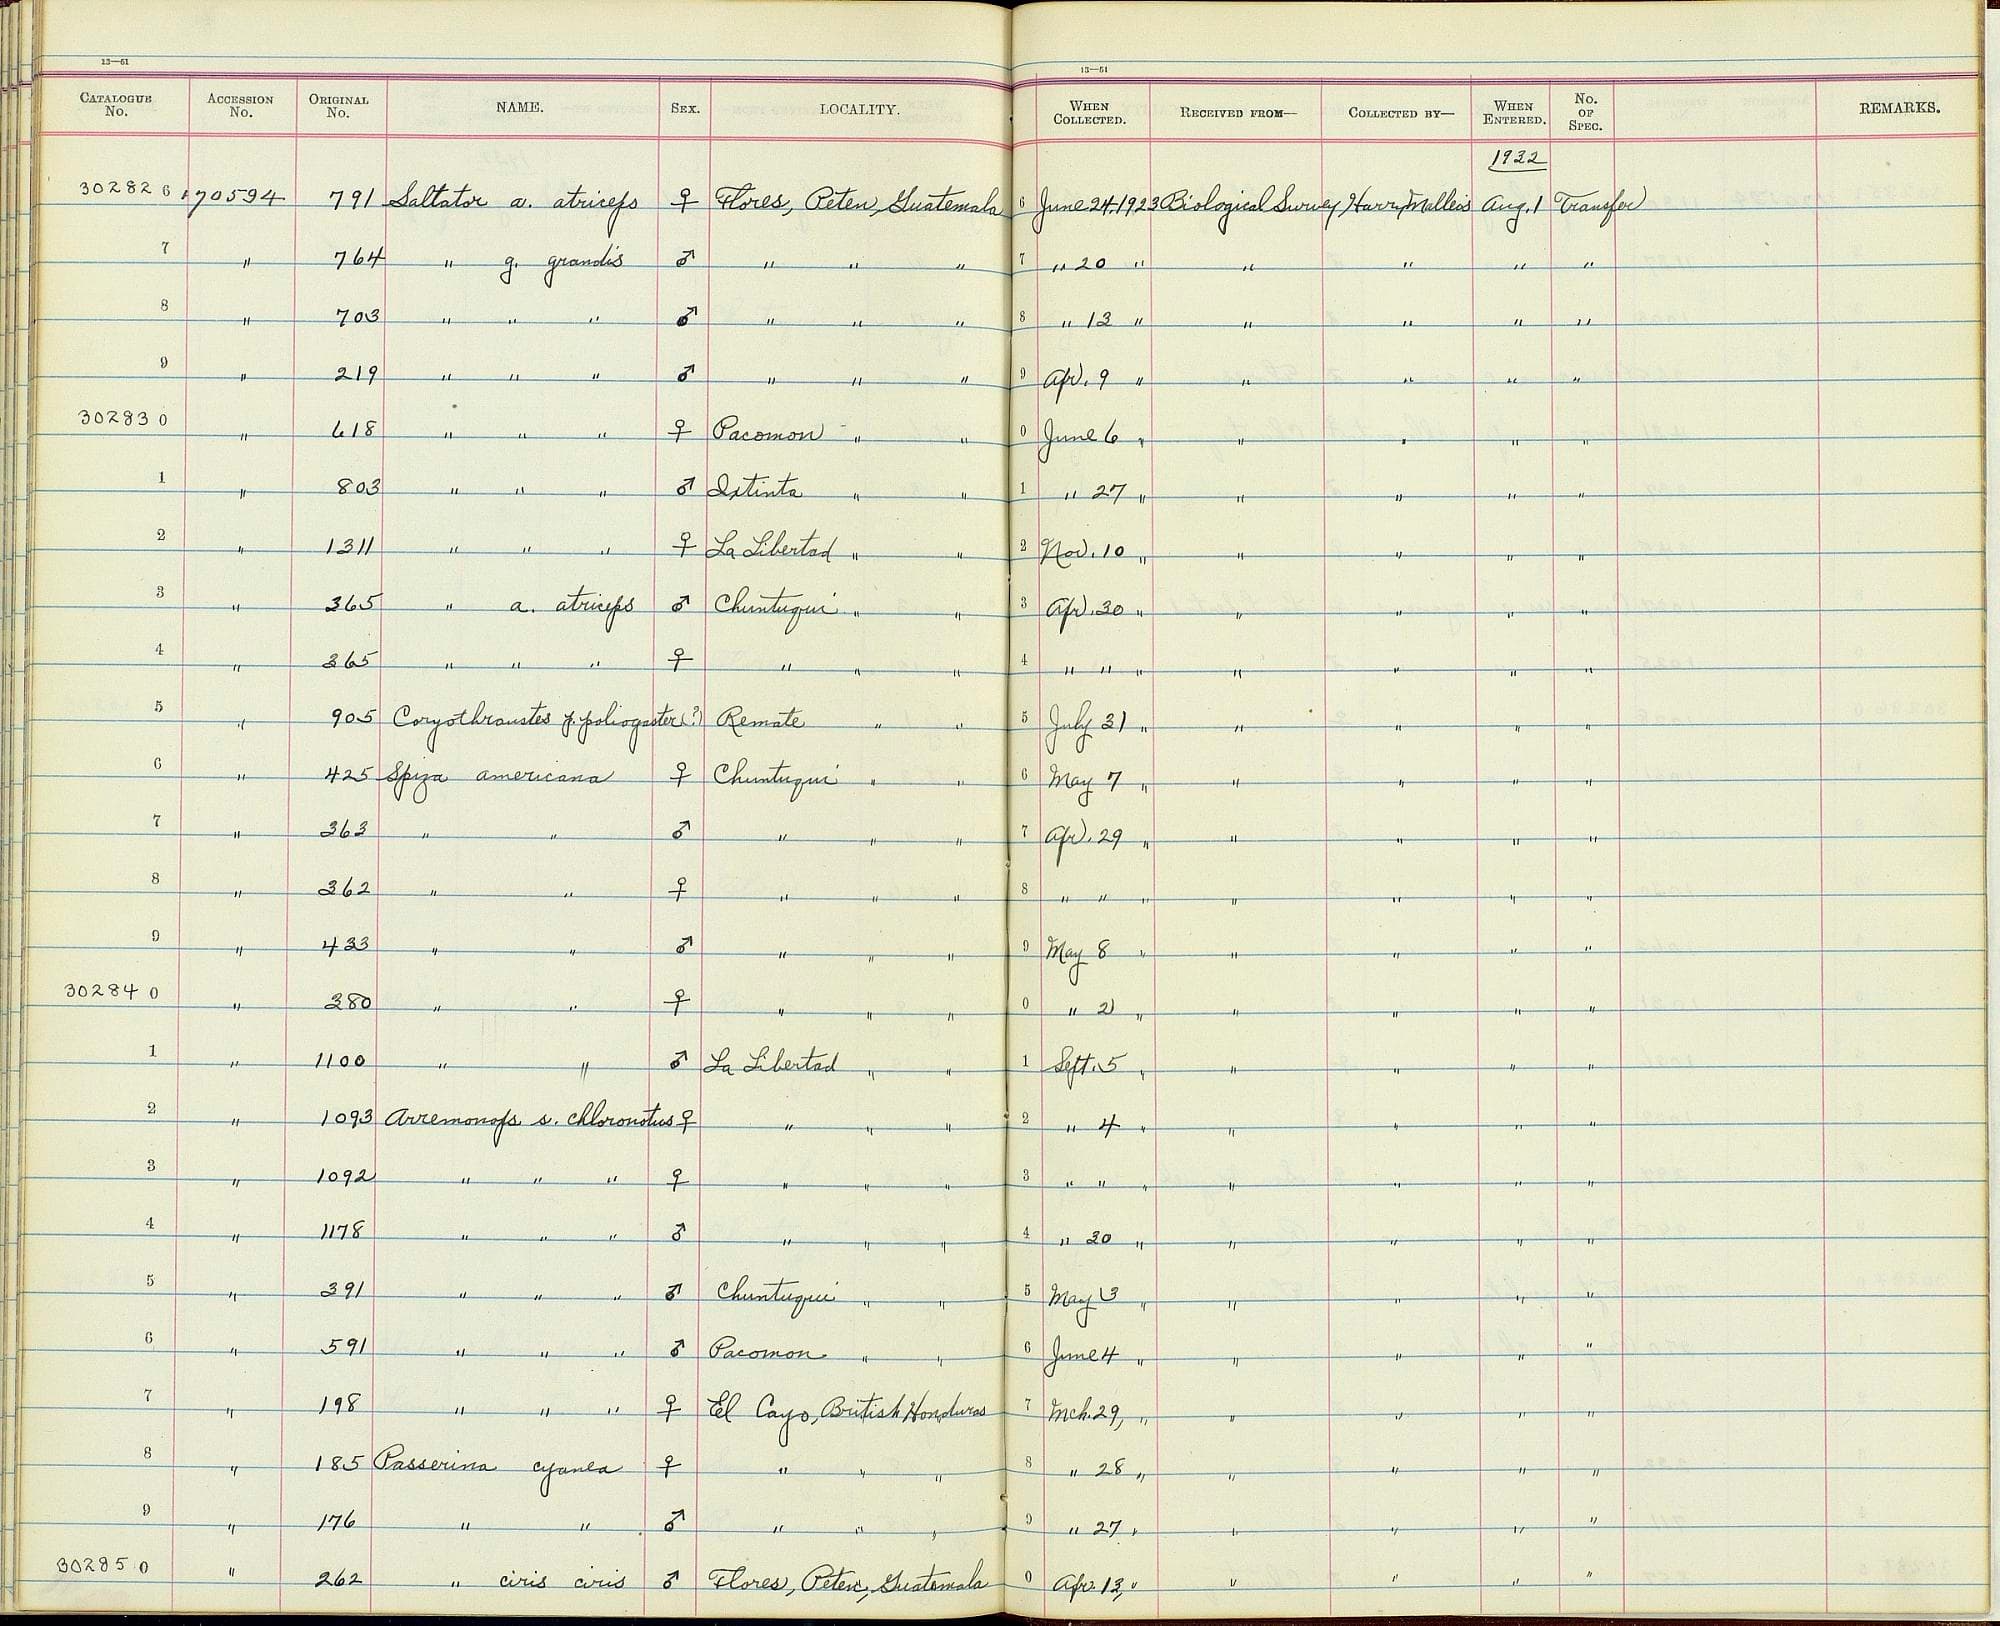 13—51 13—51
Catalogue No. Accession No. Original No. NAME. Sex. LOCALITY. When Collected. Received from— Collected by— When Entered. No. of Spec. REMARKS.
1932
302826 170594 791 Saltator a. atriceps ♀ Flores, Peten, Guatemala 6 June 24, 1923 Biological Survey Harry Malleis Aug. 1 Transfer
7 " 764 " g. grandis ♂ " " " 7 " 20 " " " " "
8 " 703 " " " ♂ " " " 8 " 13 " " " " "
9 " 219 " " " ♂ " " " 9 Apr. 9 " " " " "
302830 " 618 " " " ♀ Pacomon " " 0 June 6 " " " " "
1 " 803 " " " ♂ Ixtinta " " 1 " 27 " " " " "
2 " 1311 " " " ♀ La Libertad " " 2 Nov. 10 " " " " "
3 " 365 " a. atriceps ♂ Chuntuqui " " 3 Apr. 30 " " " " "
4 " 365 " " " ♀ " " " 4 " " " " " "
5 " 905 Caryothraustes p. poliogaster (?) Remate " " 5 July 31 " " " " "
6 " 425 Spiza americana ♀ Chuntuqui " " 6 May 7 " " " " "
7 " 363 " " ♂ " " " 7 Apr. 29 " " " " "
8 " 362 " " ♀ " " " 8 " " " " " " "
9 " 433 " " ♂ " " " 9 May 8 " " " " "
302840 " 380 " " ♀ " " " 0 " 2 " " " " "
1 " 1100 " " ♂ La Libertad " " 1 Sept. 5 " " " " "
2 " 1093 Arremonops s. chloronotus ♀ " " " 2 " 4 " " " " "
3 " 1092 " " " ♀ " " " 3 " " " " " " "
4 " 1178 " " " ♂ " " " 4 " 30 " " " " "
5 " 391 " " " ♂ Chuntuqui " " 5 May 3 " " " " "
6 " 591 " " " ♂ Pacomon " " 6 June 4 " " " " "
7 " 198 " " " ♀ El Cayo, British Honduras 7 Mch. 29, " " " " "
8 " 185 Passerina cyanea ♀ " " " 8 " 28 " " " " "
9 " 176 " " ♂ " " " 9 " 27 " " " " "
302850 " 262 " ciris ciris ♂ Flores, Peten, Guatemala 0 Apr. 13, " " " " "